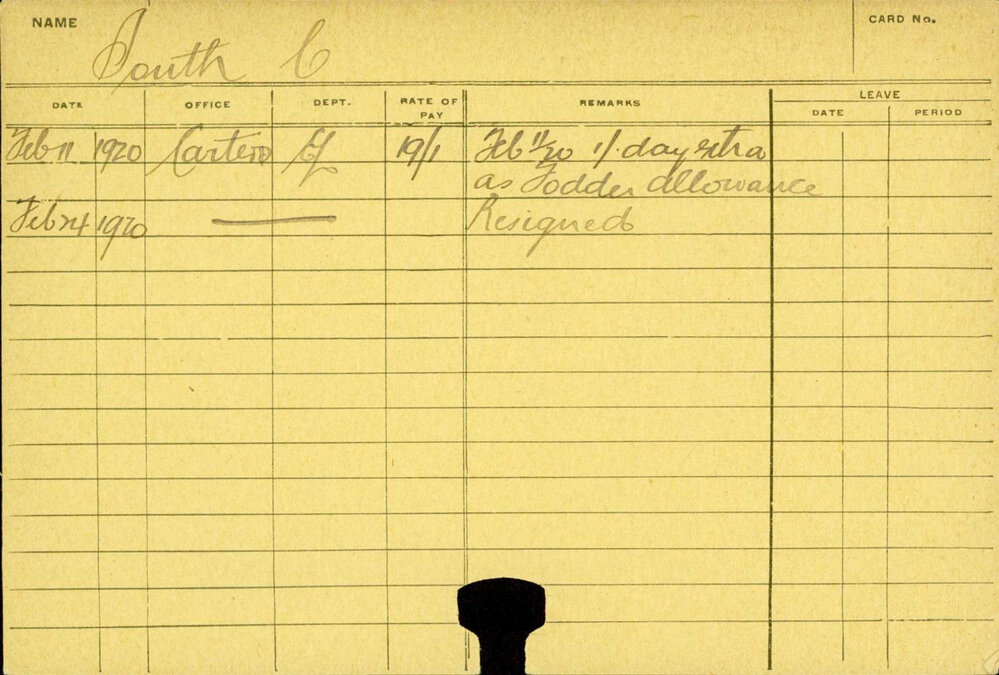 NAME South C
CARD No.
DATE OFFICE DEPT. RATE OF PAY REMARKS LEAVE
DATE PERIOD
Feb 11 1920 19/1 Feb 11/20 1/. day extra
as Fodder allowance
Feb 24 1920 — Resigned